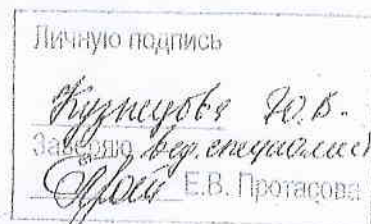 Личную подпись
Кузнецова Ю.В.
Заверяю вед. специалист
Е.В. Протасова